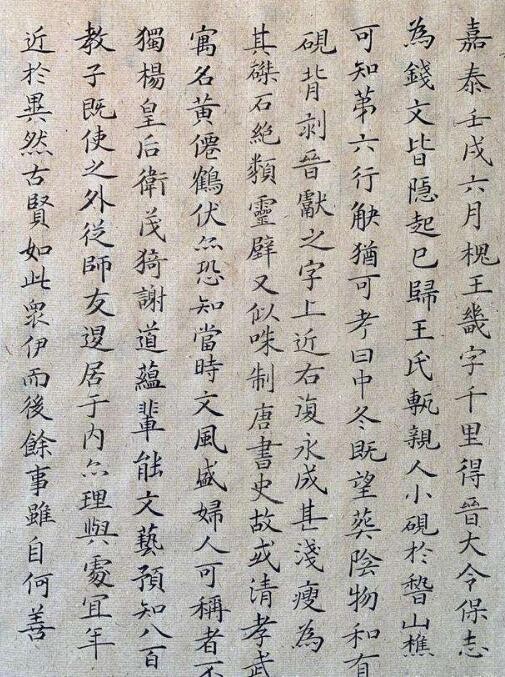 嘉泰壬戌六月槐王畿字千里得晉大令保志
為錢文皆隱起已歸王氏甎親人小硯於嵆山樵
可知第六行缺猶可考曰中冬既望葬陰物和有
硯背剥晉獻之字上近右復永成甚淺瘦為
其磔石絕類靈壁又似咮制唐書史故或清孝武
寓名黃僊鶴伏尒恐知當時文風盛婦人可稱者不
獨楊皇后衛茂猗謝道藴輩能文藝預知八百
教子既使之外從師友退居于内尒理與處宜年
近於異然古賢如此衆伊而後餘事雖自何善